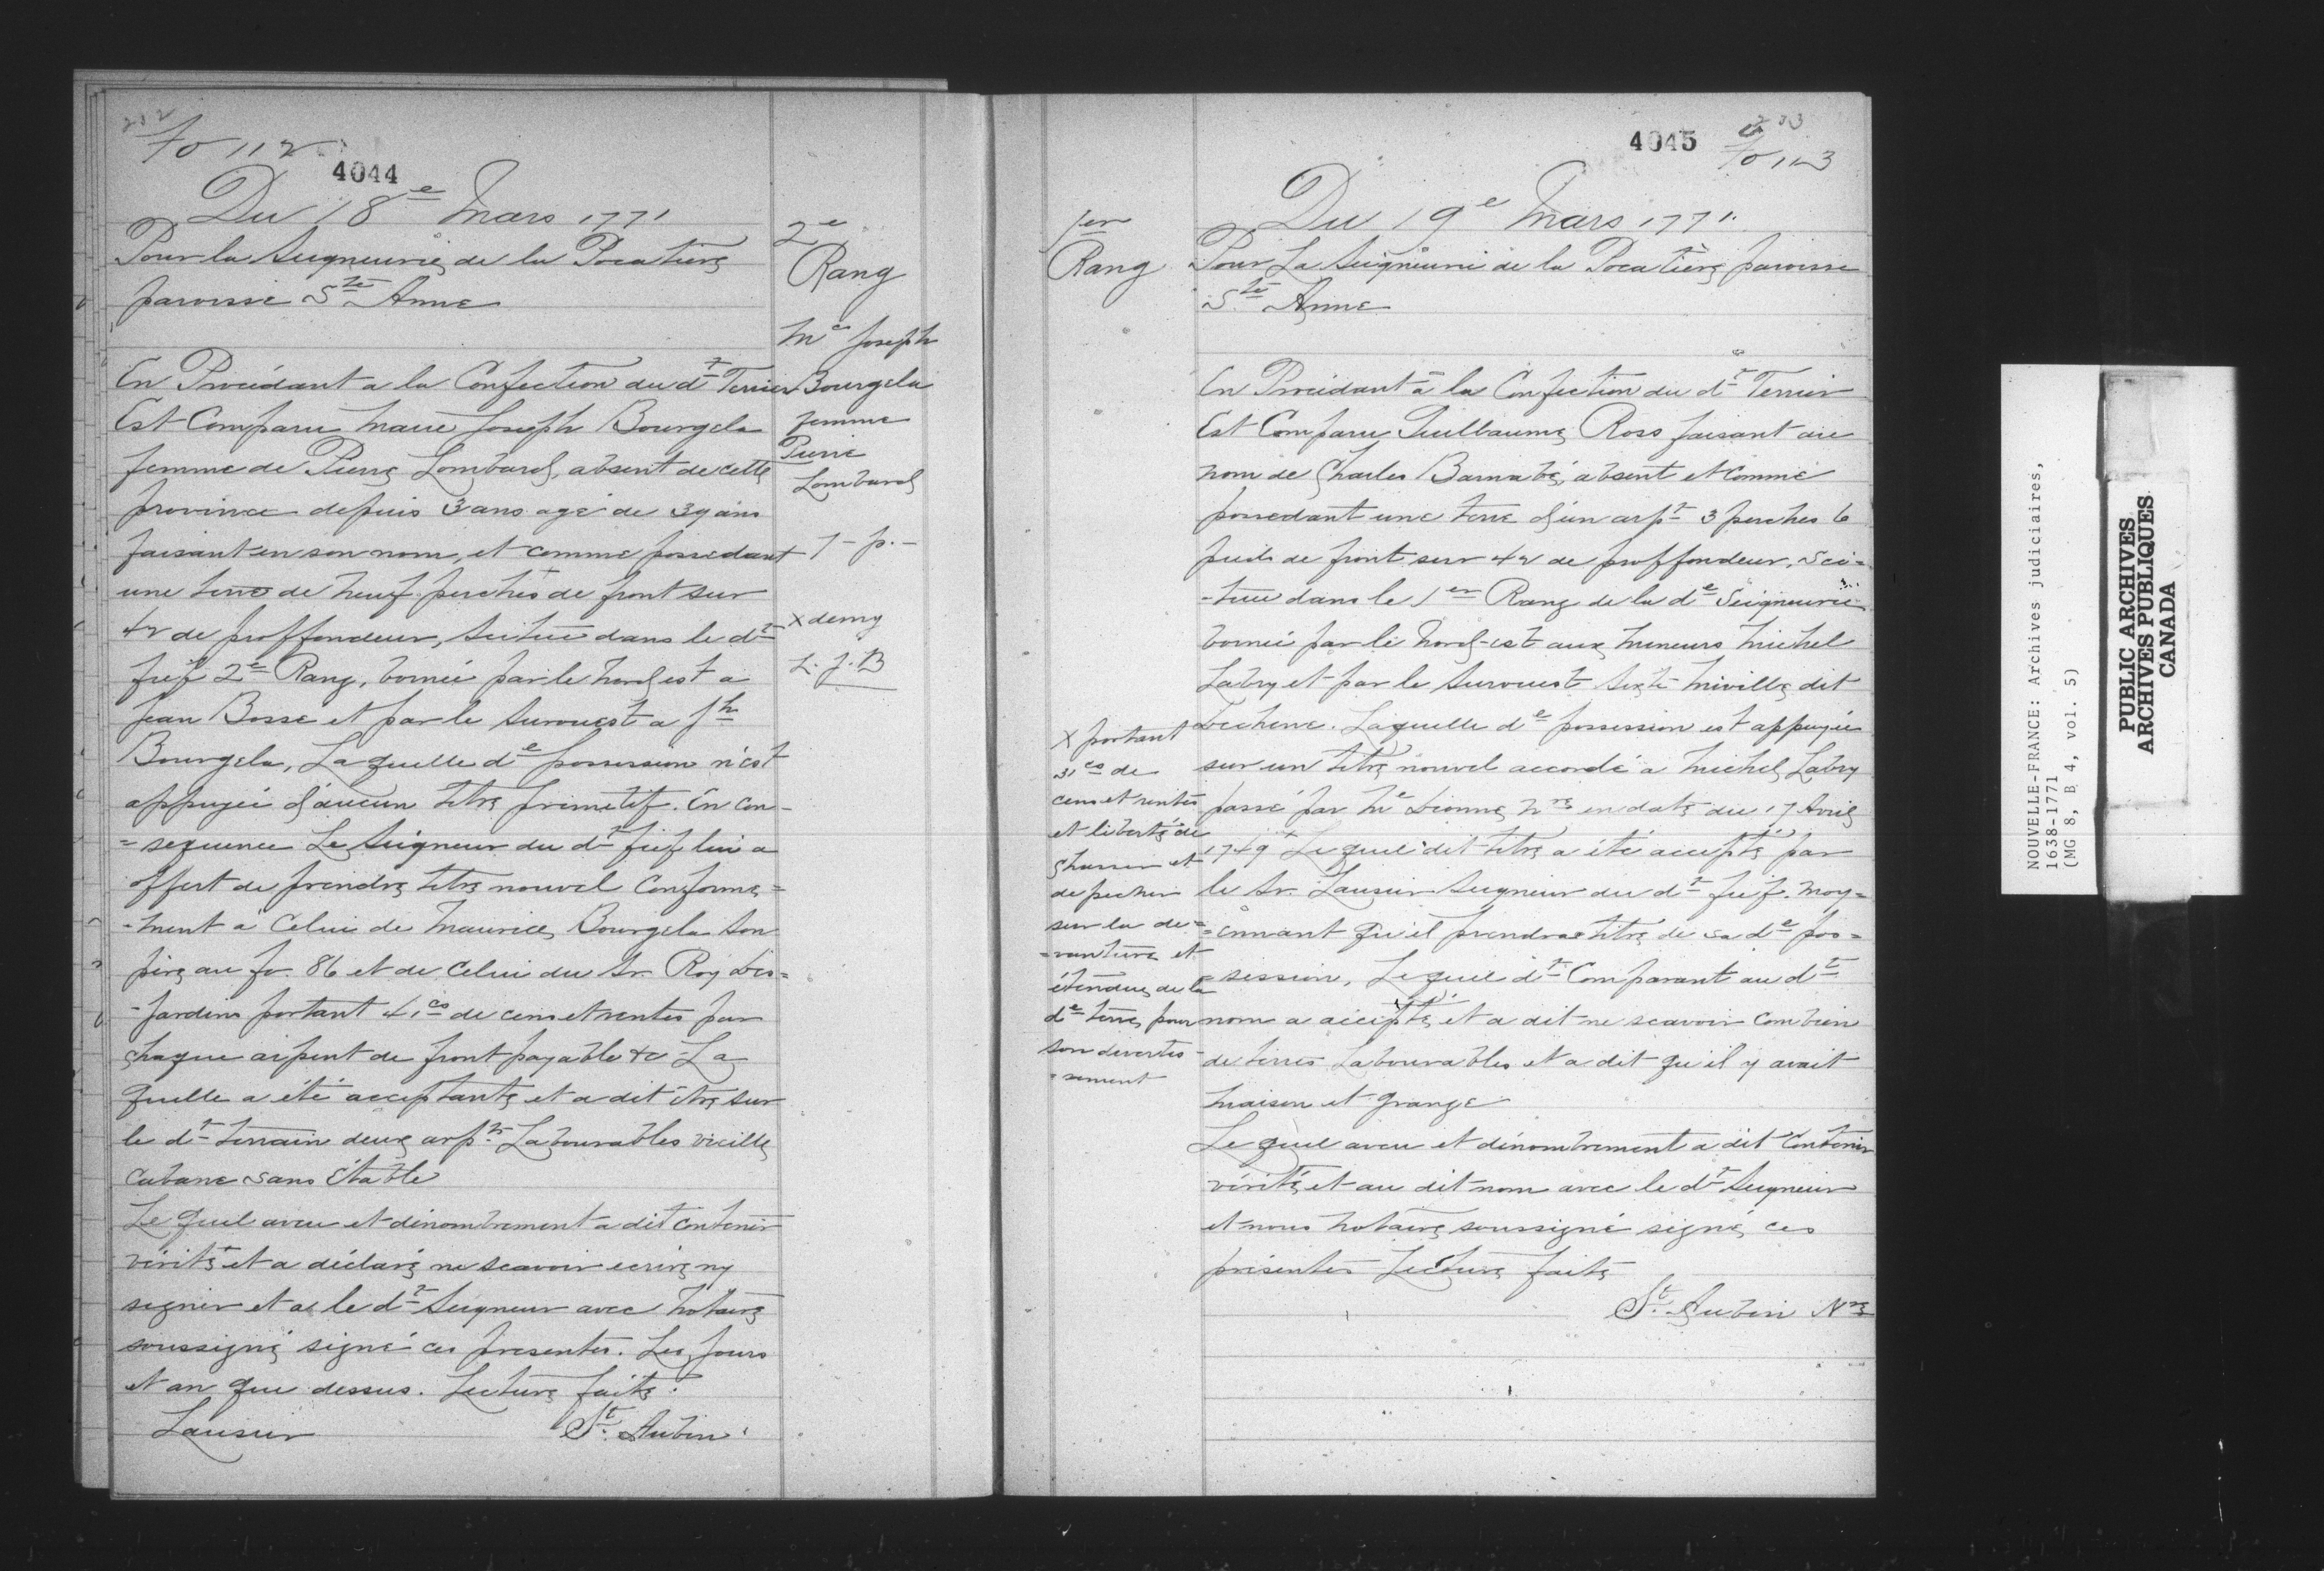 212
fo 112
4044
Du 18e Mars 1771
Pour la Seigneurie de la Pocatière
paroisse Ste Anne
En Procédant a la Confection du dt Terrier
Est Comparu Marie Joseph Bourgela
femme de Pierre Lombard, absent de cette
province depuis 3 ans agé de 39 ans
faisant en son nom, et comme possedant
une terre de neuf perches de front sur
42 de proffondeur, scituée dans le dt
fief 2e Rang, bornée par le Nord est a
Jean Bosse et par le Surouest a Jh
Bourgela, Laquelle de possession n'est
appuyée d'aucun titre primetif. En con-
=sequence Le Seigneur du dt fief lui a
offert de prendre titre nouvel Conforme=
-ment à Celui de Maurice Bourgela Son
père au fo. 86 et de Celui du Sr. Roy Des=
-jardins portant 41cs de cens et rentes par
chaque arpent de front payable &c La
quelle a été acceptante et a dit être sur
le dt terrain deux arpts Labourables vieille
cabane sans étable
Le quel aveu et dénombrement a dit contenir
vérité et a déclaré ne scavoir ecrire ny
signer et a le dt Seigneur avec Notaire
soussigné signé ces presentes. Les jours
et an que dessus. Lecture faite.
Lausier St. Aubin
2e
Rang
Me Joseph
Bourgela
femme
Pierre
Lombard
1 - p. -
x demy
L. J. B
4045
fo 113
Du 19e Mars 1771.
1er
Rang
Pour La Seigneurie de la Pocatière paroisse
Ste Anne
En Procédant à la Confection du dt Terrier
Est Comparu Guillaume Ross faisant au
nom de Charles Barnabé, absent et comme
possedant une terre d'un arpt 3 perches 6
pieds de front sur 42 de proffondeur, Sci-
-tuée dans le 1er Rang de la de Seigneurie
bornée par le Nord-est aux mineurs Michel
Labry et par le Surouest Miville dit
Dechene. Laquelle de possession est appuyée
sur un titre nouvel accordé a Michel Labry
passé par Me Dionne Nre en date du 17 Avril
1749 x Lequel dit titre a été accepté par
le Sr. Lausier Seigneur du dt fief. moy=
=ennant qu'il prendra titre de sa de pos=
=session, Lequel dt Comparant au dt
nom a accepté et a dit ne scavoir combien
de terres Labourables et a dit qu'il y avait
maison et grange
Le quel aveu et dénombrement a dit Contenir
vérité et au dit nom avec le dt Seigneur
et nous Notaire soussigné signé ces
présentes Lecture faite
St. Aubin Nre
x portant
31cs de
cens et rentes
et liberté de
chasser et
de pecher
sur la de=
=vanture et
étendue de la
de terre pour
son divertis-
=sement
NOUVELLE-FRANCE: Archives judiciaires,
1638-1771
(MG 8, B 4, vol. 5)
PUBLIC ARCHIVES
ARCHIVES PUBLIQUES
CANADA